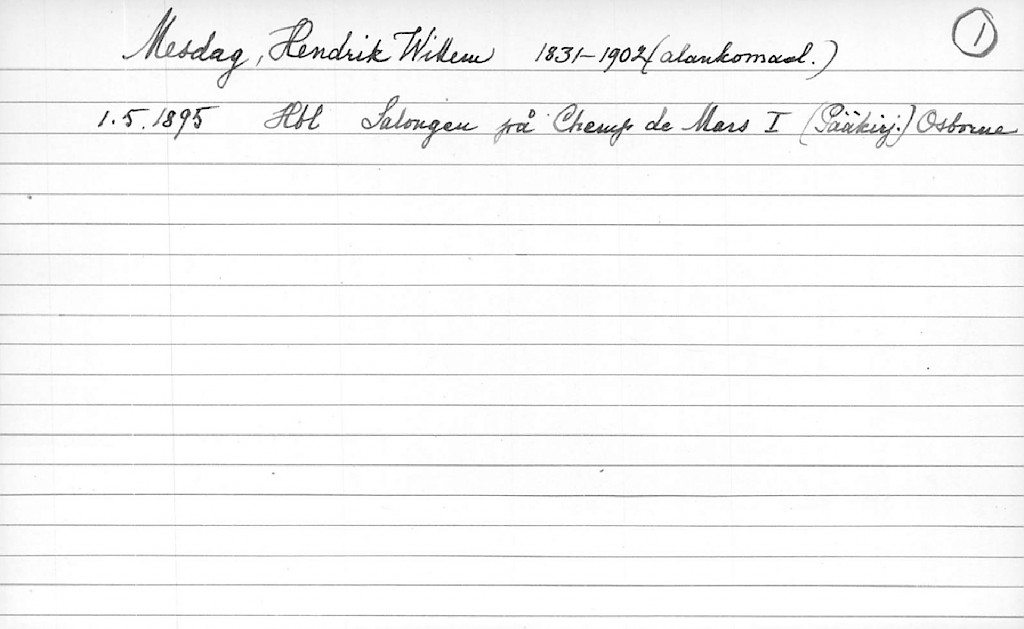 Mesdag, Hendrik Willem 1831-1902 (alankomaal.) 1
1.5.1895 Hbl Salongen på Champ de Mars I (Pääkirj.) Osborne